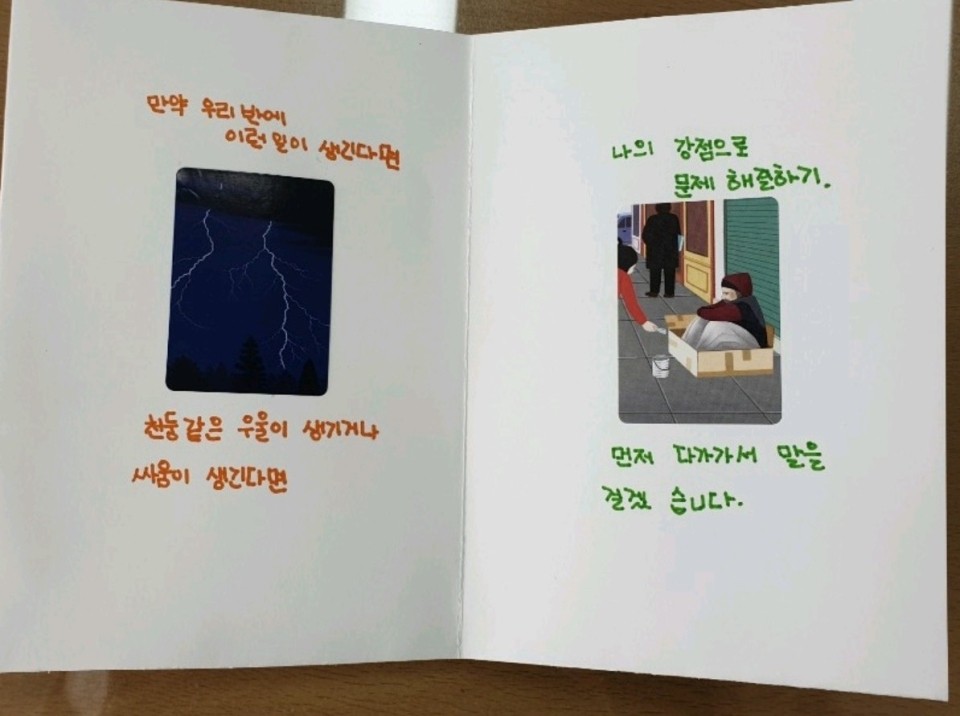 만약 우리 반에
이런 일이 생긴다면
천둥같은 우울이 생기거나
싸움이 생긴다면
나의 강점으로
문제 해결하기.
먼저 다가가서 말을
걸겠 습니다.